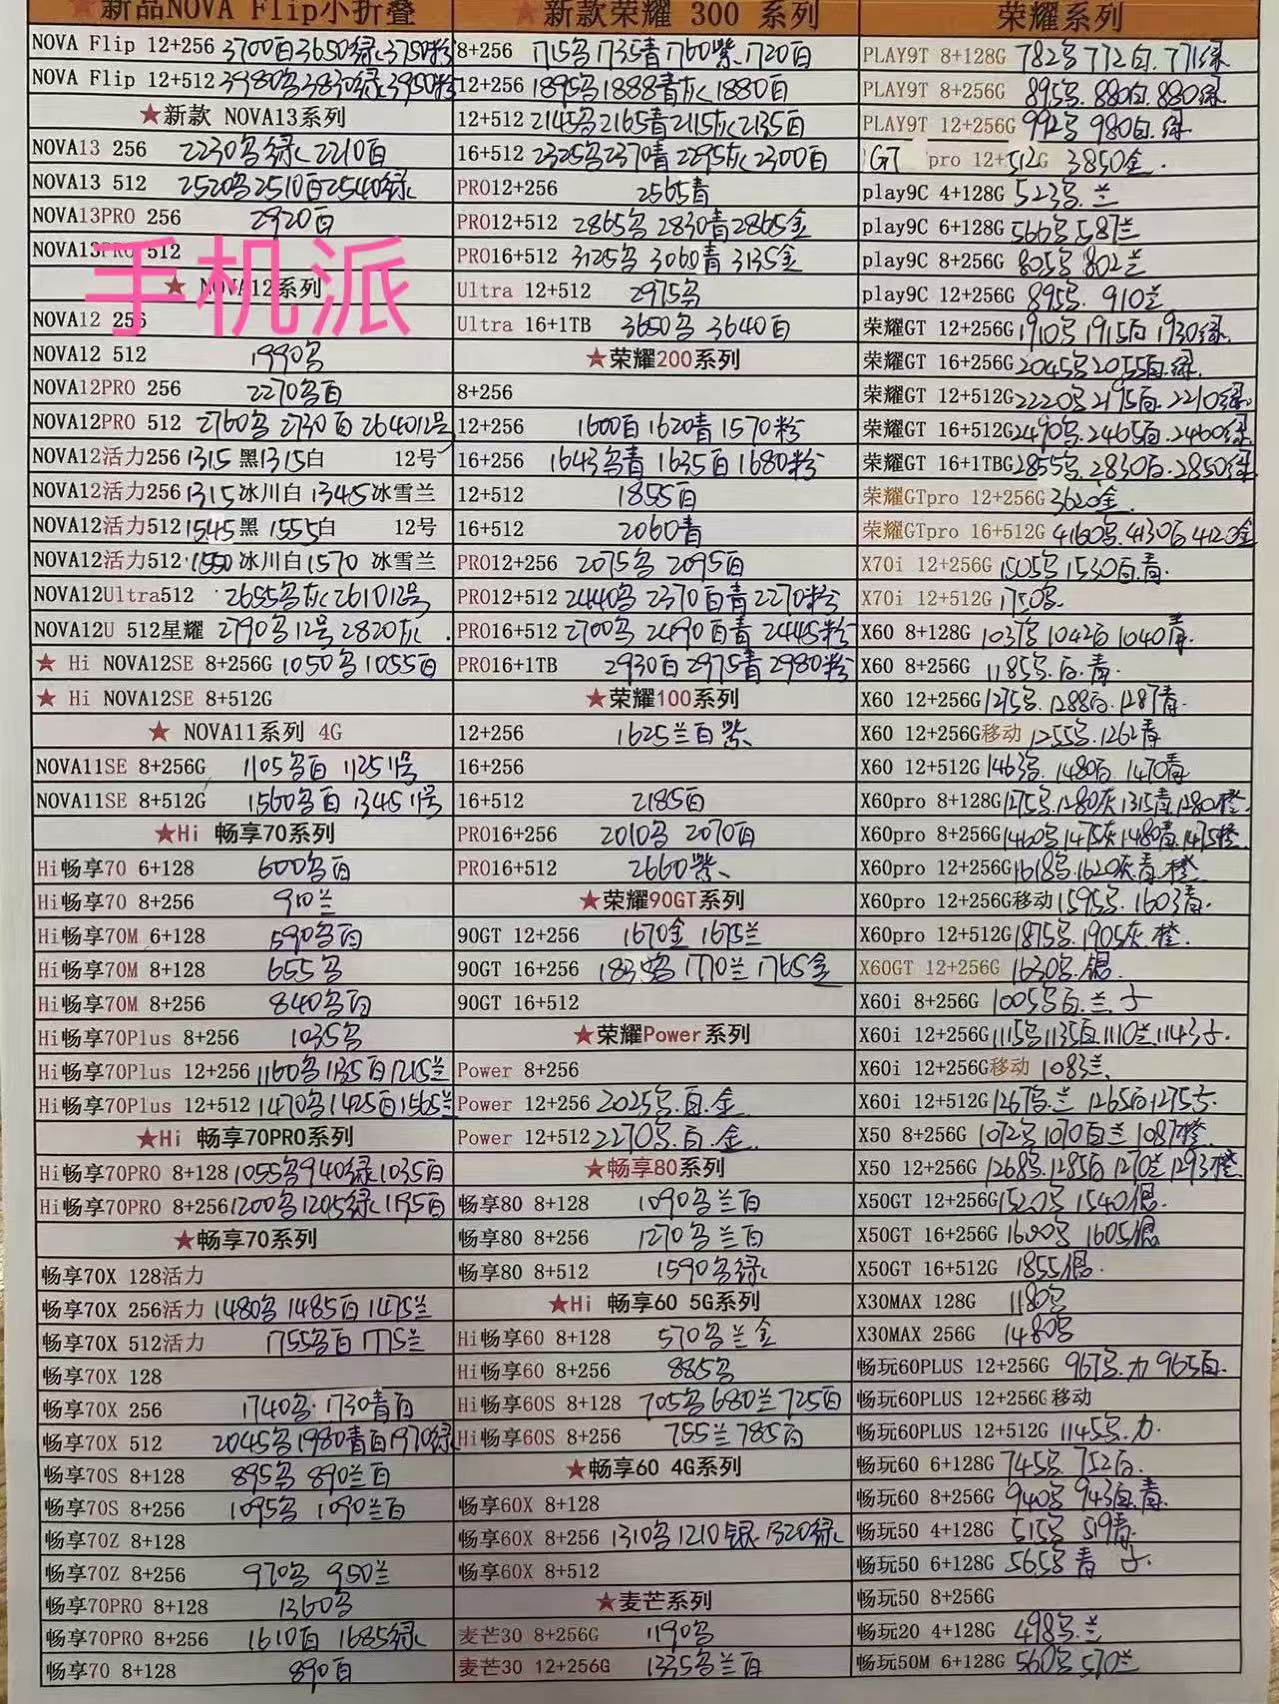 ★新品NOVA Flip小折叠
NOVA Flip 12+256 3700白3650绿3750粉
NOVA Flip 12+512 3980名3830绿3950粉
★新款 NOVA13系列
NOVA13 256 2230名绿 2210白
NOVA13 512 2520名2510白2540绿
NOVA13PRO 256 2920白
NOVA13PRO 512
手机派
★ NOVA12系列
NOVA12 256
NOVA12 512 1990名
NOVA12PRO 256 2270名白
NOVA12PRO 512 2760名 2730白 264012号
NOVA12活力256 1315黑1315白 12号
NOVA12活力256 1315冰川白 1345冰雪兰
NOVA12活力512 1545黑 1555白 12号
NOVA12活力512 1550冰川白1570 冰雪兰
NOVA12Ultra512 2655名灰261012号
NOVA12U 512星耀 2790名12号 2820灰
★ Hi NOVA12SE 8+256G 1050名1055白
★ Hi NOVA12SE 8+512G
★ NOVA11系列 4G
NOVA11SE 8+256G 1105名白 112511号
NOVA11SE 8+512G 1560名白 134511号
★Hi 畅享70系列
Hi畅享70 6+128 600名白
Hi畅享70 8+256 910兰
Hi畅享70M 6+128 590名白
Hi畅享70M 8+128 655名
Hi畅享70M 8+256 840名白
Hi畅享70Plus 8+256 1035名
Hi畅享70Plus 12+256 1160名1135白1215兰
Hi畅享70Plus 12+512 1470名1425白1565兰
★Hi 畅享70PRO系列
Hi畅享70PRO 8+128 1055名940绿1035白
Hi畅享70PRO 8+256 1200名1205绿1195白
★畅享70系列
畅享70X 128活力
畅享70X 256活力 1480名 1485白 1475兰
畅享70X 512活力 1755名白 1775兰
畅享70X 128
畅享70X 256 1740名 1730青白
畅享70X 512 2045名1980青白1970绿
畅享70S 8+128 895名 890兰白
畅享70S 8+256 1095名 1090兰白
畅享70Z 8+128
畅享70Z 8+256 970名 950兰
畅享70PRO 8+128 1360名
畅享70PRO 8+256 1610白 1685绿
畅享70 8+128 890白
★新款荣耀 300 系列
8+256 1715名1735青1760紫1720白
12+256 1895名1888青灰1880白
12+512 2145名2165青2115灰2135白
16+512 2325名2370青2295灰2300白
PRO12+256 2565青
PRO12+512 2865名 2830青2865金
PRO16+512 3125名 3060青 3135金
Ultra 12+512 2975名
Ultra 16+1TB 3650名 3640白
★荣耀200系列
8+256
12+256 1600白1620青1570粉
16+256 1643名青 1635白1680粉
12+512 1855白
16+512 2060青
PRO12+256 2075名 2095白
PRO12+512 2440名 2370白青2270粉
PRO16+512 2700名 2490白青 2445粉
PRO16+1TB 2930白2975青2980粉
★荣耀100系列
12+256 1625兰白紫
16+256
16+512 2185白
PRO16+256 2010名 2070白
PRO16+512 2660紫
★荣耀90GT系列
90GT 12+256 1670金 1675兰
90GT 16+256 1770兰 1765金
90GT 16+512
★荣耀Power系列
Power 8+256
Power 12+256 2025名.白.金
Power 12+512 2270名.白.金
★畅享80系列
畅享80 8+128 1090名兰白
畅享80 8+256 1270名兰白
畅享80 8+512 1590名绿
★Hi 畅享60 5G系列
Hi畅享60 8+128 570名兰金
Hi畅享60 8+256 885名
Hi畅享60S 8+128 705名680兰725白
Hi畅享60S 8+256 755兰785白
★畅享60 4G系列
畅享60X 8+128
畅享60X 8+256 1310名1210银1320绿
畅享60X 8+512
★麦芒系列
麦芒30 8+256G 1190名
麦芒30 12+256G 1335名兰白
荣耀系列
PLAY9T 8+128G 782名772白.771绿
PLAY9T 8+256G 895名.880白.880绿
PLAY9T 12+256G 992名 980白.绿
GT pro 12+512G 3850金.
play9C 4+128G 523名.兰
play9C 6+128G 566名587兰
play9C 8+256G 805名802兰
play9C 12+256G 895名. 910兰
荣耀GT 12+256G 1910名1915白1930绿
荣耀GT 16+256G 2045名2055白.绿
荣耀GT 12+512G 2220名2195白.2210绿
荣耀GT 16+512G 2490名.2465白.2460绿
荣耀GT 16+1TBG 2855名.2830白.2850绿
荣耀GTpro 12+256G 3620金.
荣耀GTpro 16+512G 4160名.4130白4120金
X70i 12+256G 1505名1530白.青.
X70i 12+512G 1750名.
X60 8+128G 1037名1042白1040青.
X60 8+256G 1185名.白.青.
X60 12+256G 1275名.1288白.1287青.
X60 12+256G移动 1255名.1262青
X60 12+512G 1463名.1480白.1470青
X60pro 8+128G 1275名.1280灰1315青.1280橙.
X60pro 8+256G 1460名1475灰1480青.1475橙.
X60pro 12+256G 1618名.1620灰.青.橙
X60pro 12+256G移动 1595名.1603青.
X60pro 12+512G 1875名.1905灰.橙.
X60GT 12+256G 1630名.银.
X60i 8+256G 1005名白.兰.子
X60i 12+256G 1115名1135白1110兰.1143子.
X60i 12+256G移动 1083兰.
X60i 12+512G 1267名.兰 1265白1275子.
X50 8+256G 1072名1070白兰1087橙.
X50 12+256G 1268名.1285白1270兰.1293橙.
X50GT 12+256G 1520名 1540银.
X50GT 16+256G 1600名 1605银
X50GT 16+512G 1855银.
X30MAX 128G 1180名
X30MAX 256G 1480名
畅玩60PLUS 12+256G 967名.力965白.
畅玩60PLUS 12+256G移动
畅玩60PLUS 12+512G 1145名.力.
畅玩60 6+128G 745名752白.
畅玩60 8+256G 940名943白.青.
畅玩50 4+128G 515名 519青.
畅玩50 6+128G 565名青 子.
畅玩50 8+256G
畅玩20 4+128G 498名.兰
畅玩50M 6+128G 560名570兰